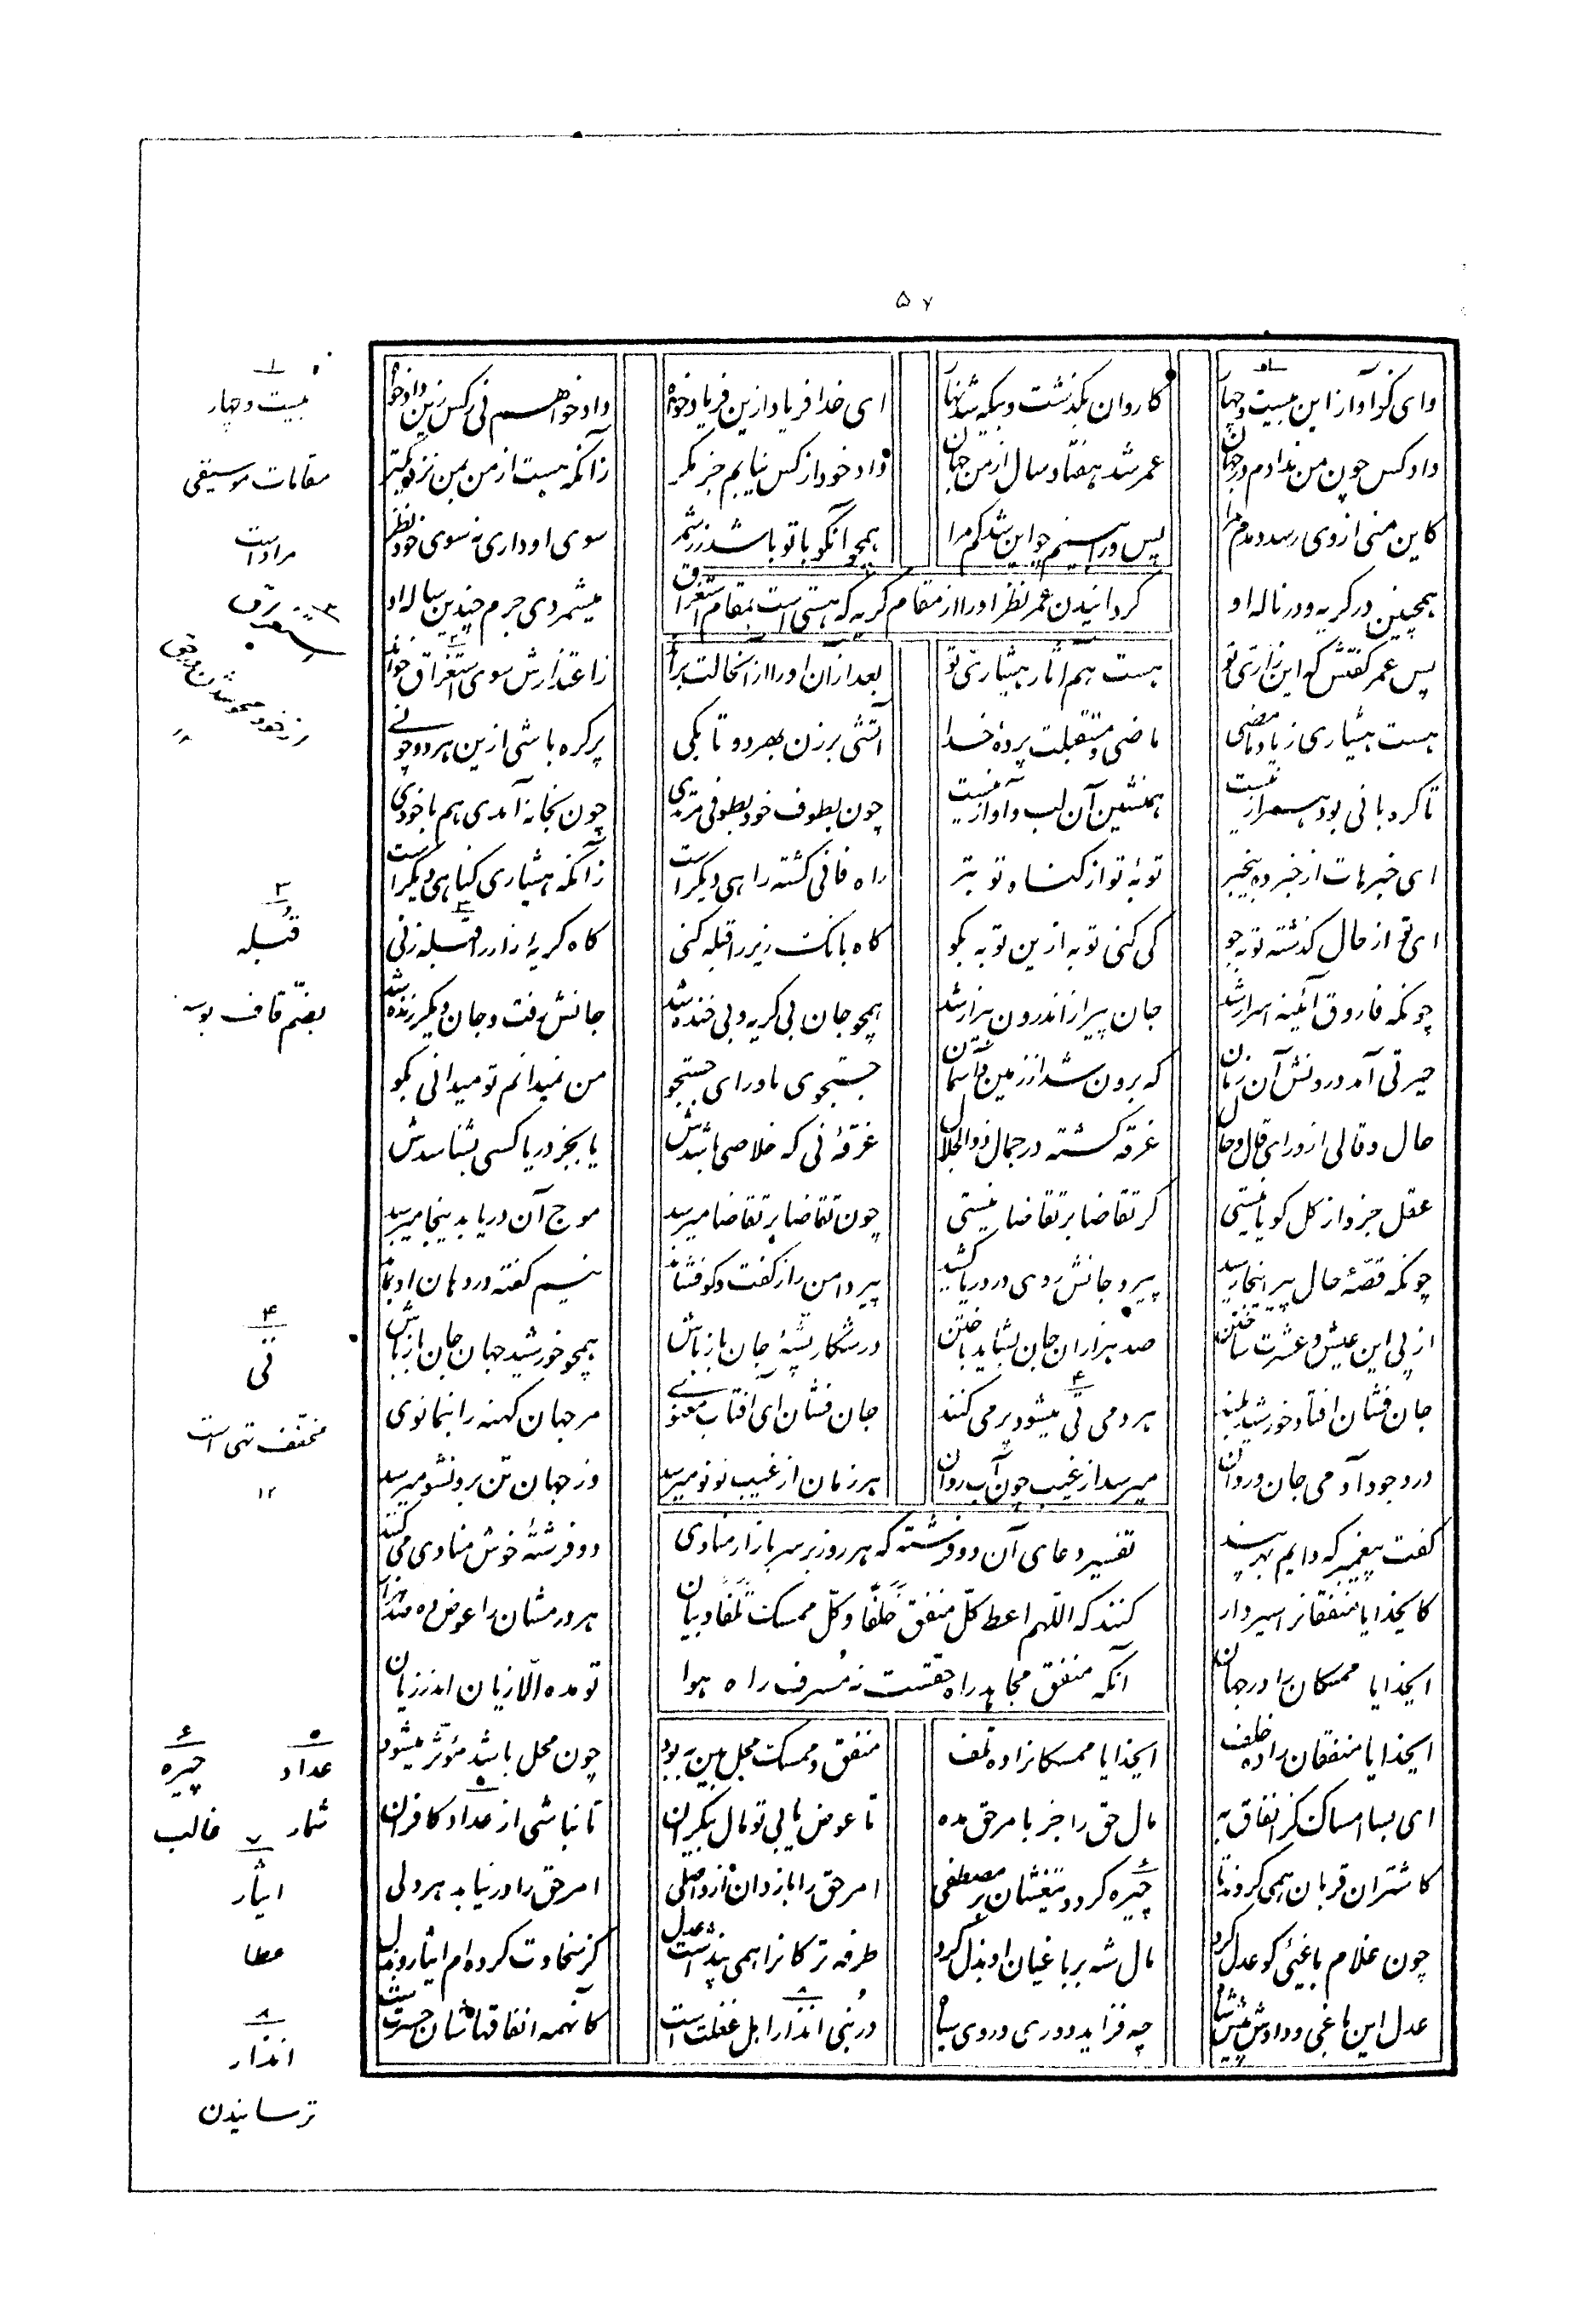 ۵۷
وای کز آواز این بیست و چهار	کاروان بگذشت و بیکه شد نهار	ای خدا فریاد ازین فریاد خواه	داد خواهم نی زکس زین داد خواه
داد کس چون من ندادم در جهان	عمر شد هفتاد سال از من جهان	داد خود از کس نیابم جز مگر	زانکه هست از من بمن نزدیکتر
کاین منی از وی رسد دمدم مرا	پس ورا بینم چو این شد کم مرا	همچو آنکو با تو باشد زر شمر	سوی او داری نه سوی خود نظر
همچنین در گریه و در ناله او	میشمردی جرم چندین ساله او
گردانیدن عمر نظر او را از مقام گریه که هستی است بمقام استغراق
پس عمر گفتش که این زاری تو	هست هم آثار هشیاری تو	بعد از آن او را از آنحالت براند	ز اعتذارش سوی استغراق خواند
هست هشیاری ز یاد ما مضی	ماضی و مستقبلت پردهٔ خدا	آتشی برزن بهر دو تا بکی	پر گره باشی ازین هر دو چو نی
تا گره با نی بود همراز نیست	همنشین آن لب و آواز نیست	چون بطوف خود بطوفی مرتدی	چون بخانه آمدی هم با خودی
ای خبرهات از خبرده بیخبر	توبهٔ تو از گناه تو بتر	راه فانی گشته راهی دیگر است	زانکه هشیاری گناهی دیگر است
ای تو از حال گذشته توبه جو	کی کنی توبه ازین توبه بگو	گاه بانگ زیر را قبله کنی	گاه گریهٔ زار را قبله زنی
چونکه فاروق آئینه اسرار شد	جان پیر از اندرون بیزار شد	همچو جان بی گریه و بی خنده شد	جانش رفت و جان دیگر زنده شد
حیرتی آمد درونش آن زمان	که برون شد از زمین و آسمان	جستجوی ماورای جستجو	من نمیدانم تو میدانی بگو
حال و قالی از ورای قال و حال	غرقه گشته در جمال ذوالجلال	غرقهٔ نی که خلاصی باشدش	یا بجز دریا کسی بشناسدش
عقل جزو از کل گویا نیستی	گر تقاضا بر تقاضا نیستی	چون تقاضا بر تقاضا میرسد	موج آن دریا بدینجا میرسد
چونکه قصّهٔ حال پیر اینجا رسید	پیر و جانش روی در دریا کشید	پیر دامن را ز گفت و گو فشاند	نیم گفته در دهان او بماند
از پی این عیش و عشرت ساختن	صد هزاران جان بشاید باختن	در شکار بیشهٔ جان باز باش	همچو خورشید جهان جان باز باش
جان فشان افتاد خورشید بلند	هر دمی تی میشود پر می کنند	جان فشان ای آفتاب معنوی	مر جهان کهنه را بنما نوی
در وجود آدمی جان و روان	میرسد از غیب چون آب روان	هر زمان از غیب نو نو میرسد	وز جهان تن برون شو میرسد
تفسیر دعای آن دو فرشته که هر روز بر سر بازار منادی
کنند که اللّهم اعط کلّ منفق خلفًا و کلّ ممسک تلفًا و بیان
آنکه منفق مجاهد راه حقست نه مُسرف راه هوا
گفت پیغمبر که دایم بهر پند	دو فرشتهٔ خوش منادی می کنند
کایخدایا منفقانرا سیر دار	هر درمشان را عوض ده صد هزار
ایخدایا ممسکان را در جهان	تو مده الّا زیان اندر زیان
ایخدایا منفقان را ده خلف	ایخدایا ممسکانرا ده تلف	منفق و ممسک محل بین به بود	چون محل باشد مؤثر میشود
ای بسا امساک کز انفاق به	مال حق را جز بامر حق مده	تا عوض یابی تو مال بیکران	تا نباشی از عداد کافران
کاشتران قربان همی کردند تا	چیره گردد تیغشان بر مصطفی	امر حق را باز دان از واصلی	امر حق را در نیابد هر دلی
چون غلام باغیی کو عدل کرد	مال شه بر باغیان او بذل کرد	طرفه ترکانرا همی پنداشت عدل	کز سخاوت کرده ام ایثار و بذل
عدل این باغی و دادش پیش شاه	چه فزاید دوری و روی سیاه	در نُبی انذار اهل غفلت است	کانهمه انفاقهاشان حسرت است
۱
بیست و چهار
مقامات موسیقی
مراد است
۲
۳
قبله
بضمّ قاف بوسه
۴
تی
مخفف تهی است
۱۲
۵
عداد
شمار
۶
چیره
غالب
۷
ایثار
عطا
۸
انذار
ترسانیدن